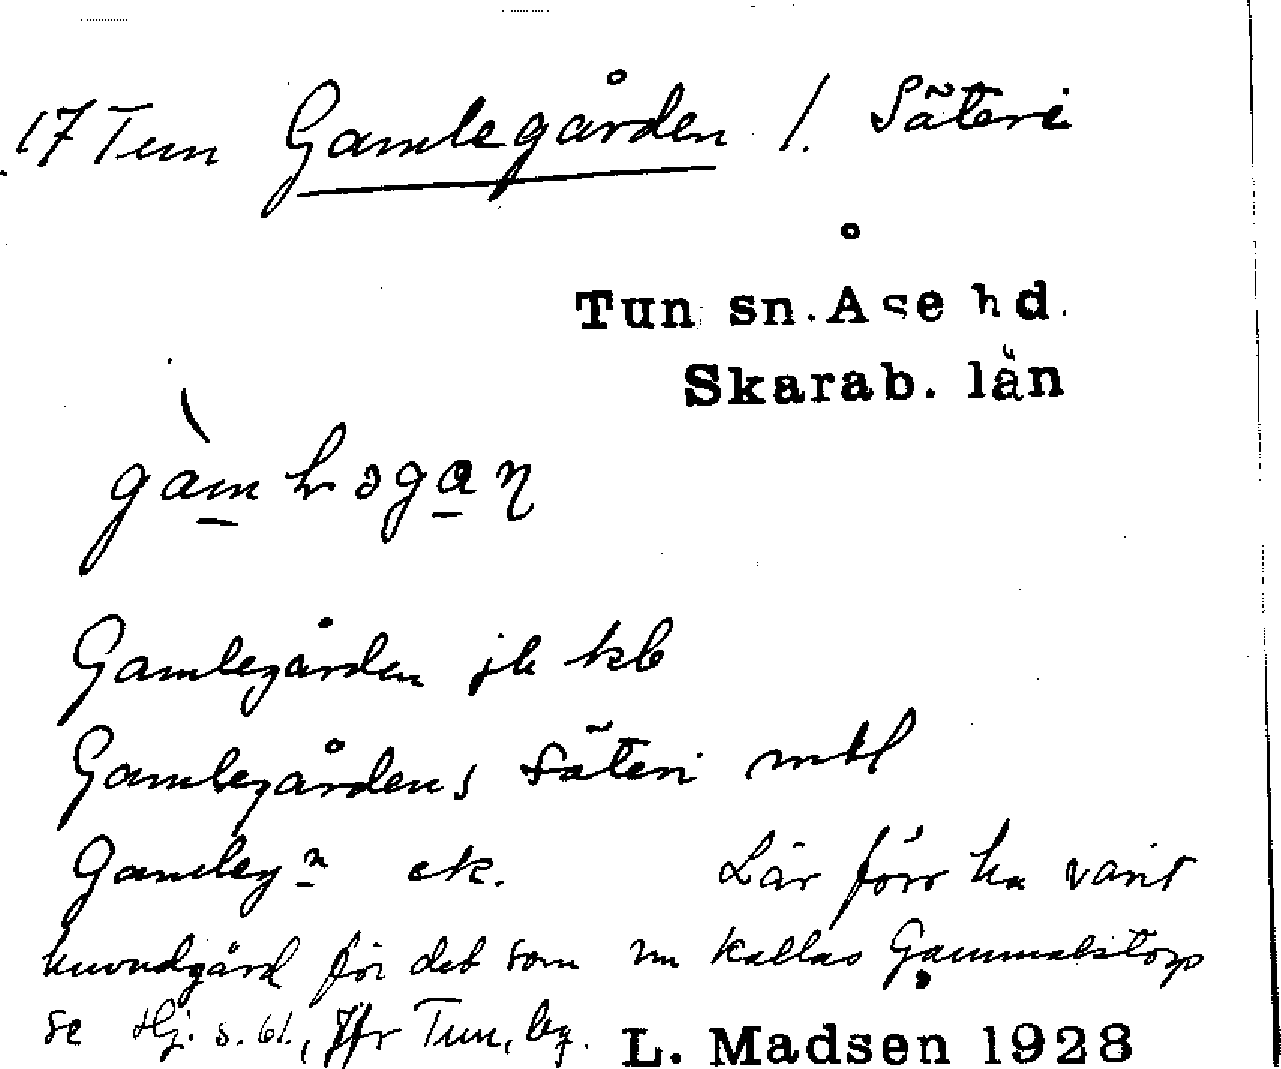 17 Tun Gamlegården 1. Säteri
Tun sn. Åse hd.
Skarab. län
Gamlegården jb kb
Gamlegårdens Säteri mtl
Gamleg:n ek. Lär förr ha varit
huvudgård för det som nu kallas Gammalstorp
se Hj. s. 61, Jfr Tun, by. L. Madsen 1928